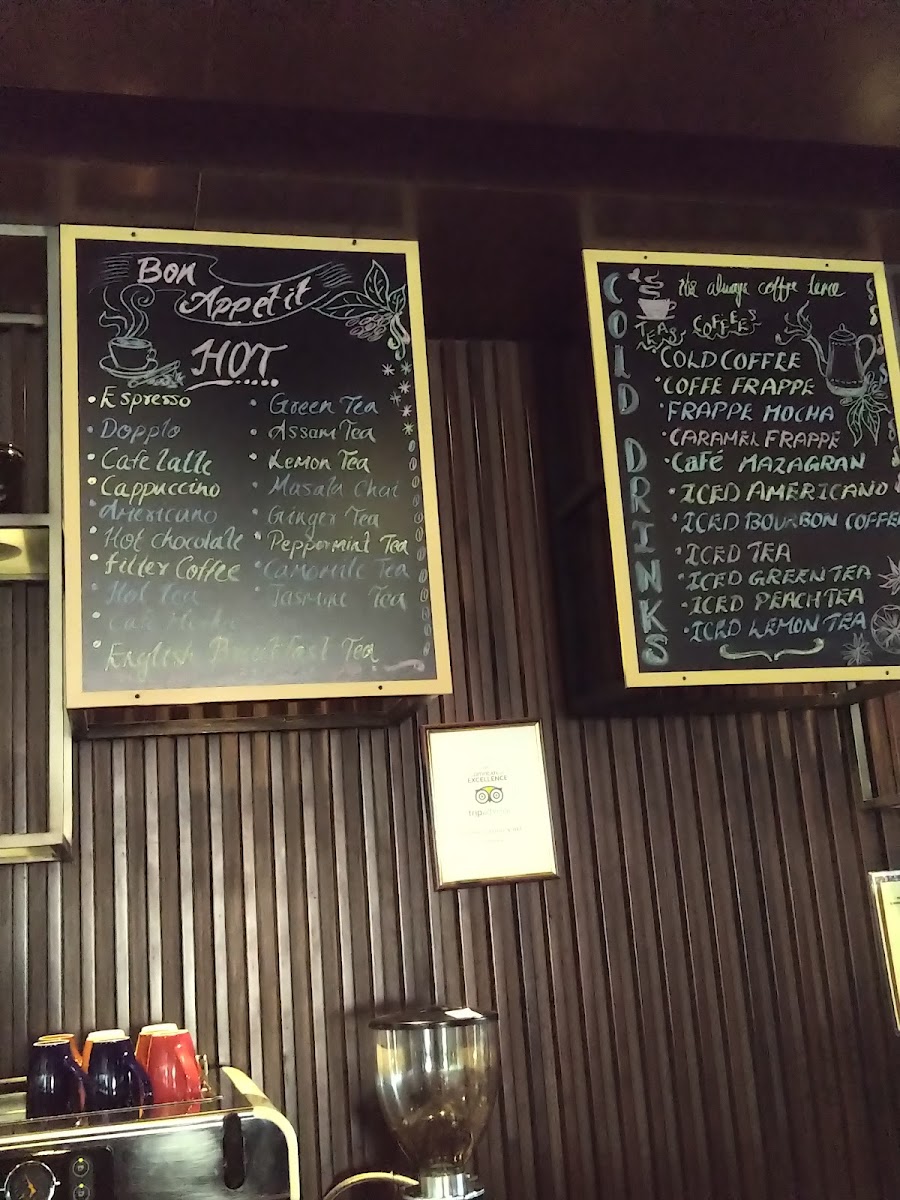 Bon
Appetit
HOT
• Espresso
• Dopplo
• Cafe Latte
• Cappuccino
• Americano
• Hot chocolate
• filter Coffee
• Hot Tea
• Cafe Mocha
• English Breakfast Tea
• Green Tea
• Assam Tea
• Lemon Tea
• Masala Chai
• Ginger Tea
• Peppermint Tea
• Camomile Tea
• Jasmine Tea
COLD DRINKS
always coffe
TEAS
COFFEES
COLD COFFEE
• COFFE FRAPPE
• FRAPPE MOCHA
• CARAMEL FRAPPE
• Café MAZAGRAN
• ICED AMERICANO
• ICED BOURBON COFFEE
• ICED TEA
• ICED GREEN TEA
• ICED PEACH TEA
• ICED LEMON TEA
EXCELLENCE